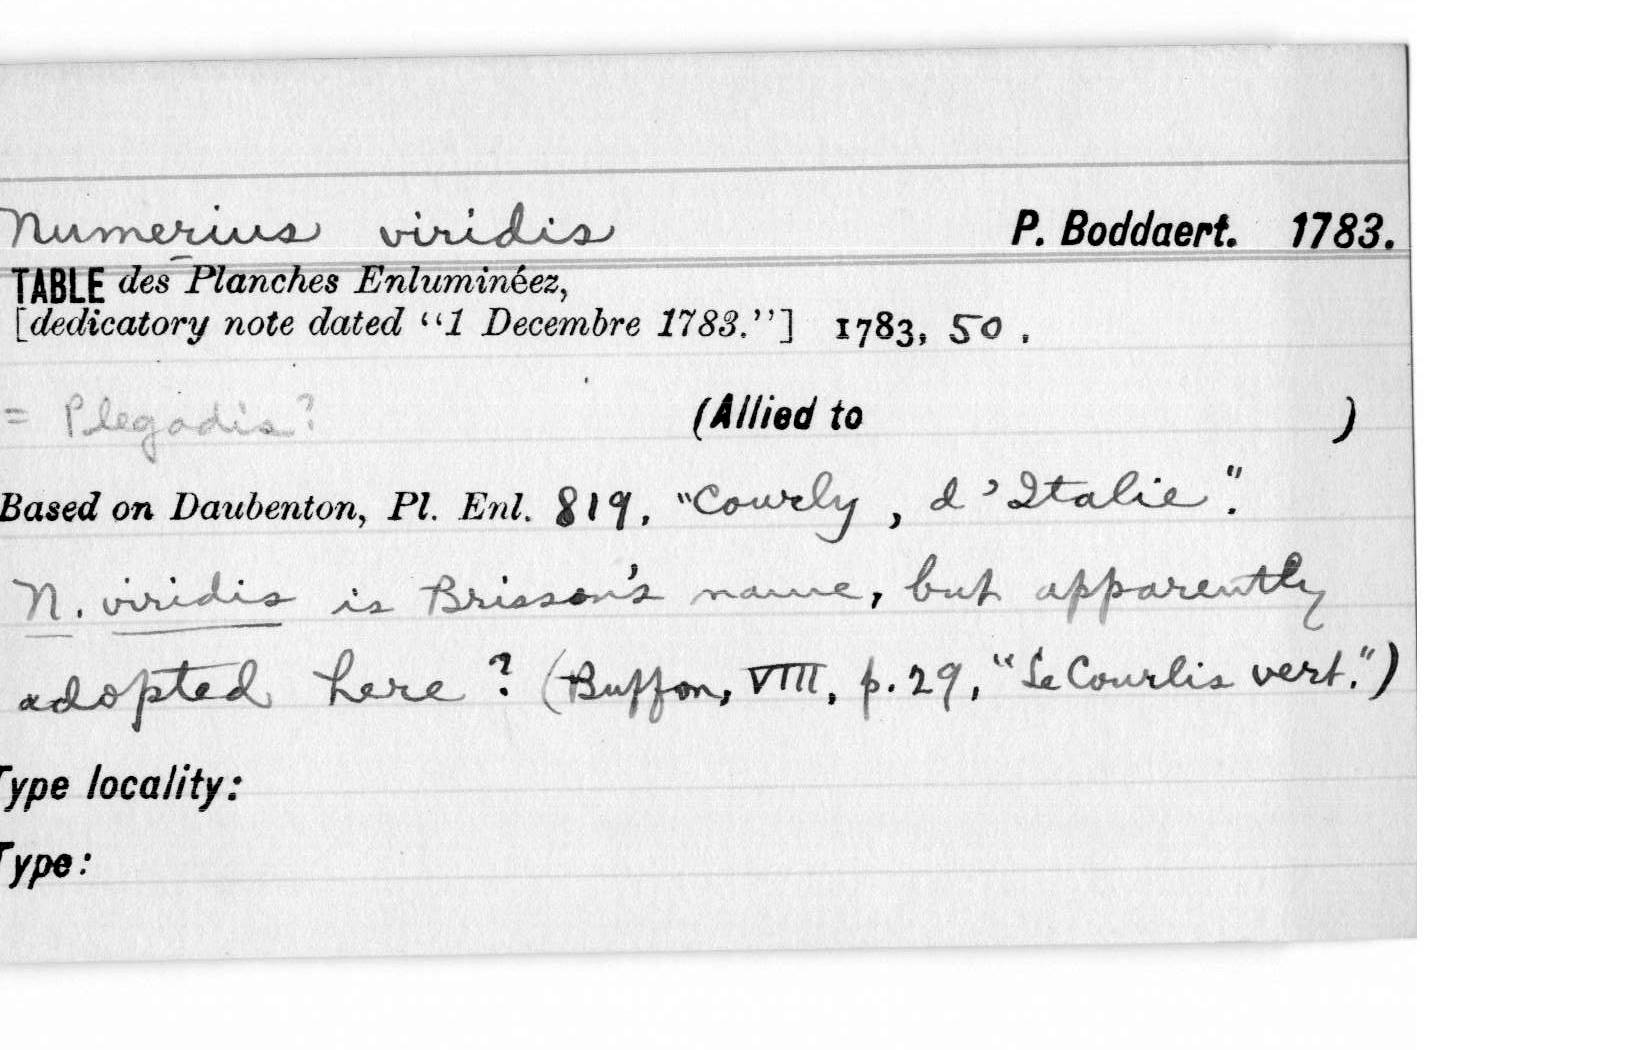 Numerius viridis P. Boddaert. 1783.
TABLE des Planches Enluminéez,
[dedicatory note dated “1 Decembre 1783.”] 1783, 50.
= Plegadis? (Allied to )
Based on Daubenton, Pl. Enl. 819, "Courly, d'Italie".
N. viridis is Brisson's name, but apparently
adopted here? (Buffon, VIII, p. 29, "Le Courlis vert.")
Type locality:
Type: